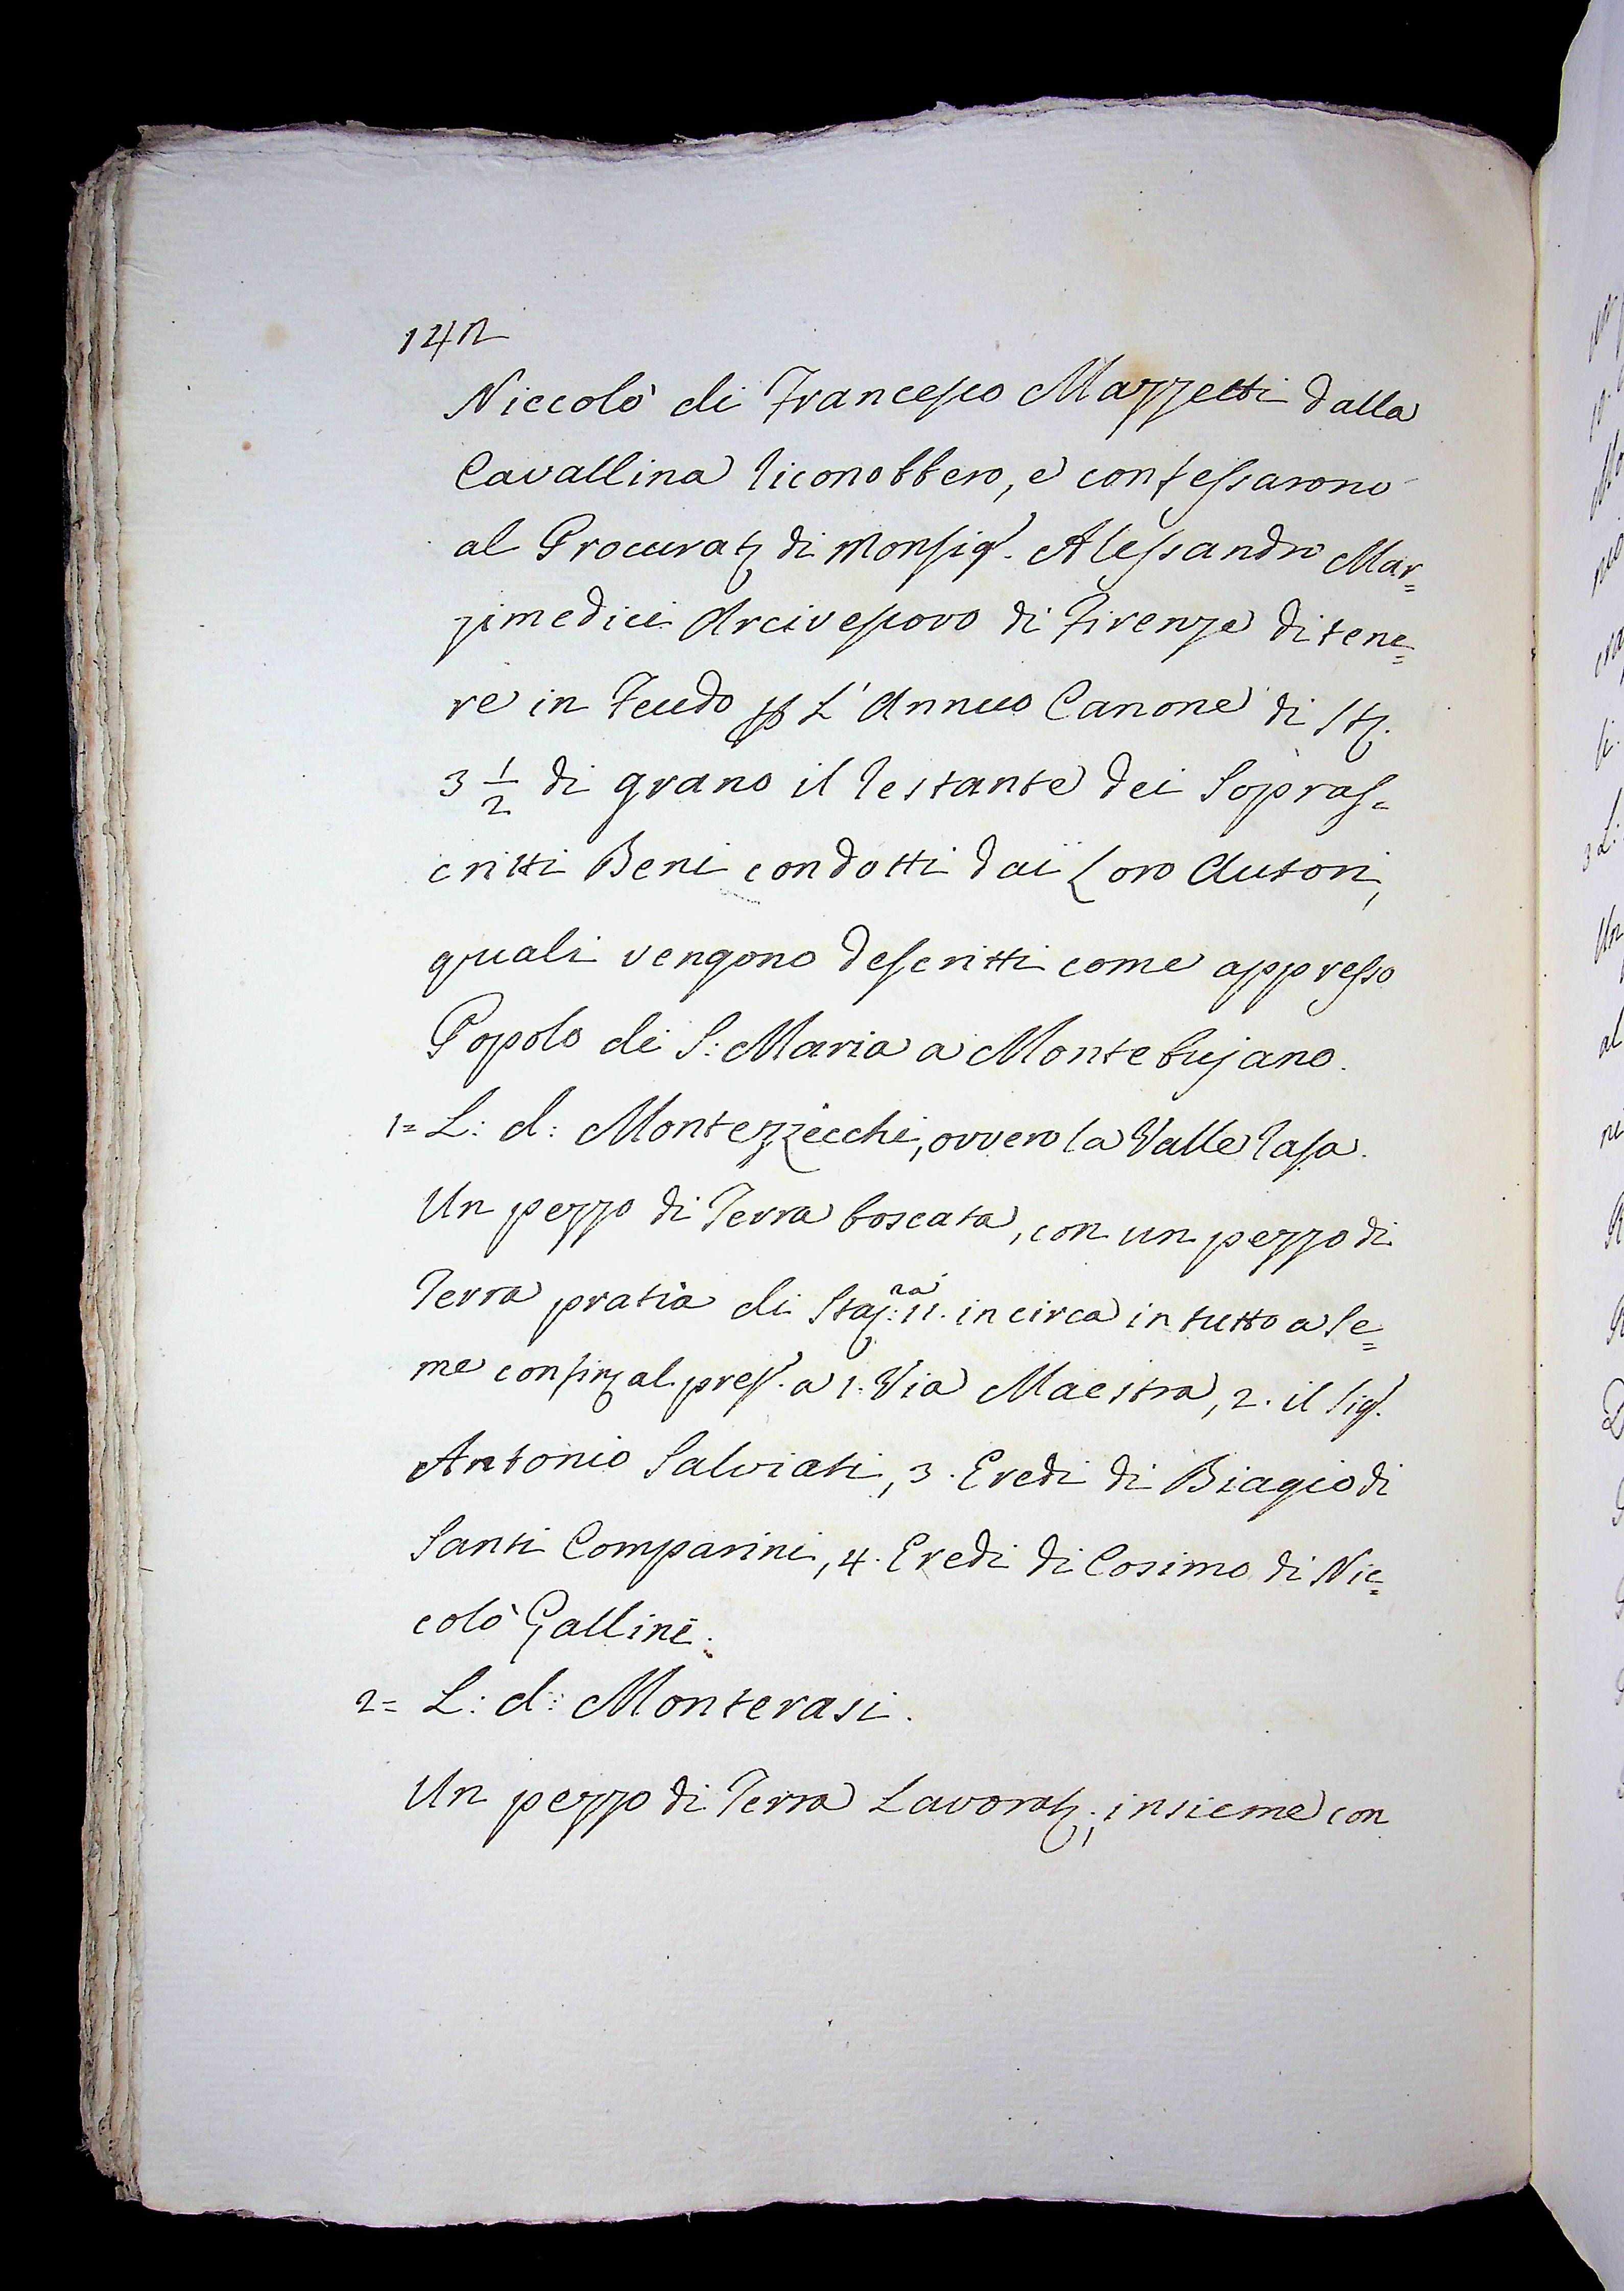 142
Niccolò di Francesco Mazzetti dalla
Cavallina riconobbero, e confessarono
al Procurat: di Monsig:r Alessandro Mar=
zimedici Arcivescovo di Firenze di tene=
re in Feudo p L'Annuo Canone di St:
3 1/2 di grano il restante dei Sopras=
critti Beni condotti dai Loro Autori,
quali vengono descritti come appresso
Popolo di S: Maria a Montebujano.
1= L: d: Montezzecchi, ovvero la Valle rasa.
Un pezzo di Terra boscata, con un pezzo di
Terra pratia di Staj:ra 11. in circa in tutto a Se=
me confin: al pres:e a 1. Via Maestra, 2. il Sig:r
Antonio Salviati, 3. Eredi di Biagio di
Santi Comparini, 4. Eredi di Cosimo di Nic=
colò Gallini.
2= L: d: Monterasi.
Un pezzo di Terra Lavorat:, insieme con